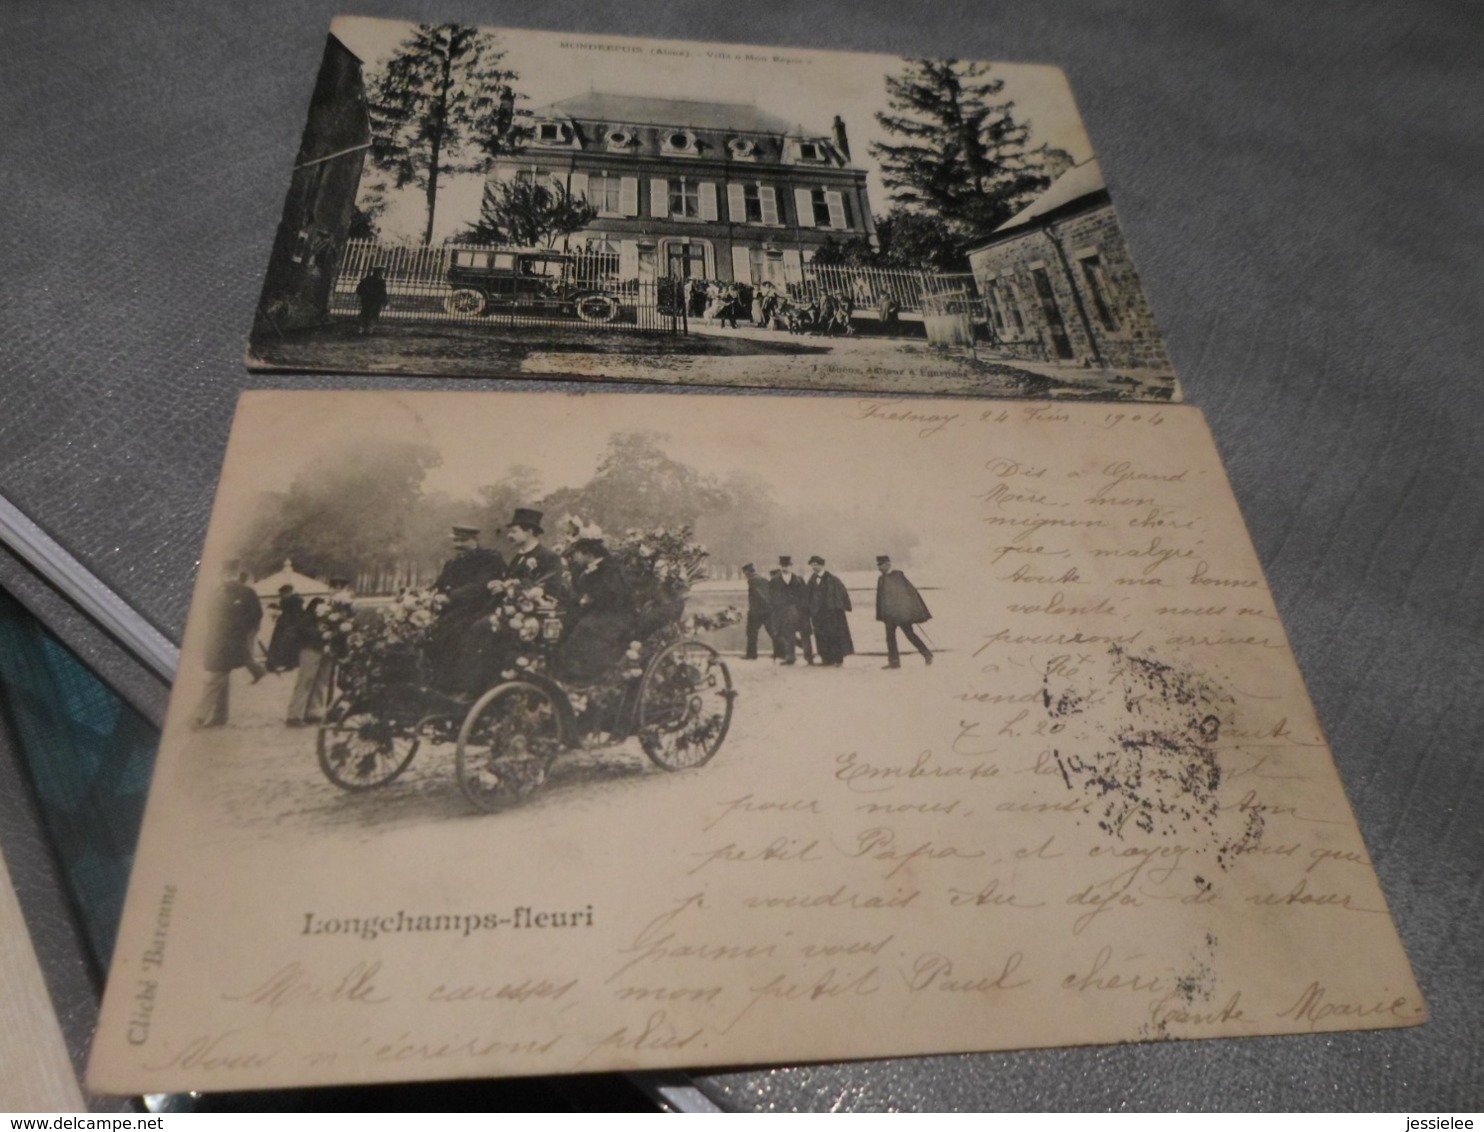 MONDREPUIS (Aisne). - Villa « Mon Repos »
éditeur à
Fresnay, 24 1904
Dis à Grand'
Mère, mon
mignon chéri,
que, malgré
toute ma bonne
volonté, nous ne
pourrons arriver
à
7 h. 20
Embrasse la
pour nous, ainsi que ton
petit Papa, et croyez tous que
je voudrais être déjà de retour
parmi vous.
Longchamps-fleuri
Cliché Barenne
Mille caresses, mon petit Paul chéri
Tante Marie.
Nous n'écrirons plus.
jessielee